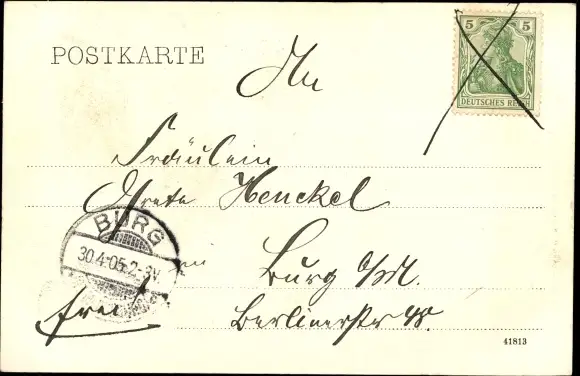 POSTKARTE
An
5 5
DEUTSCHES REICH
Fräulein
Grete Henckel
BURG
30.4.05.2-3V.
in
Burg b/M.
frei
Berlinerstr 48.
41813